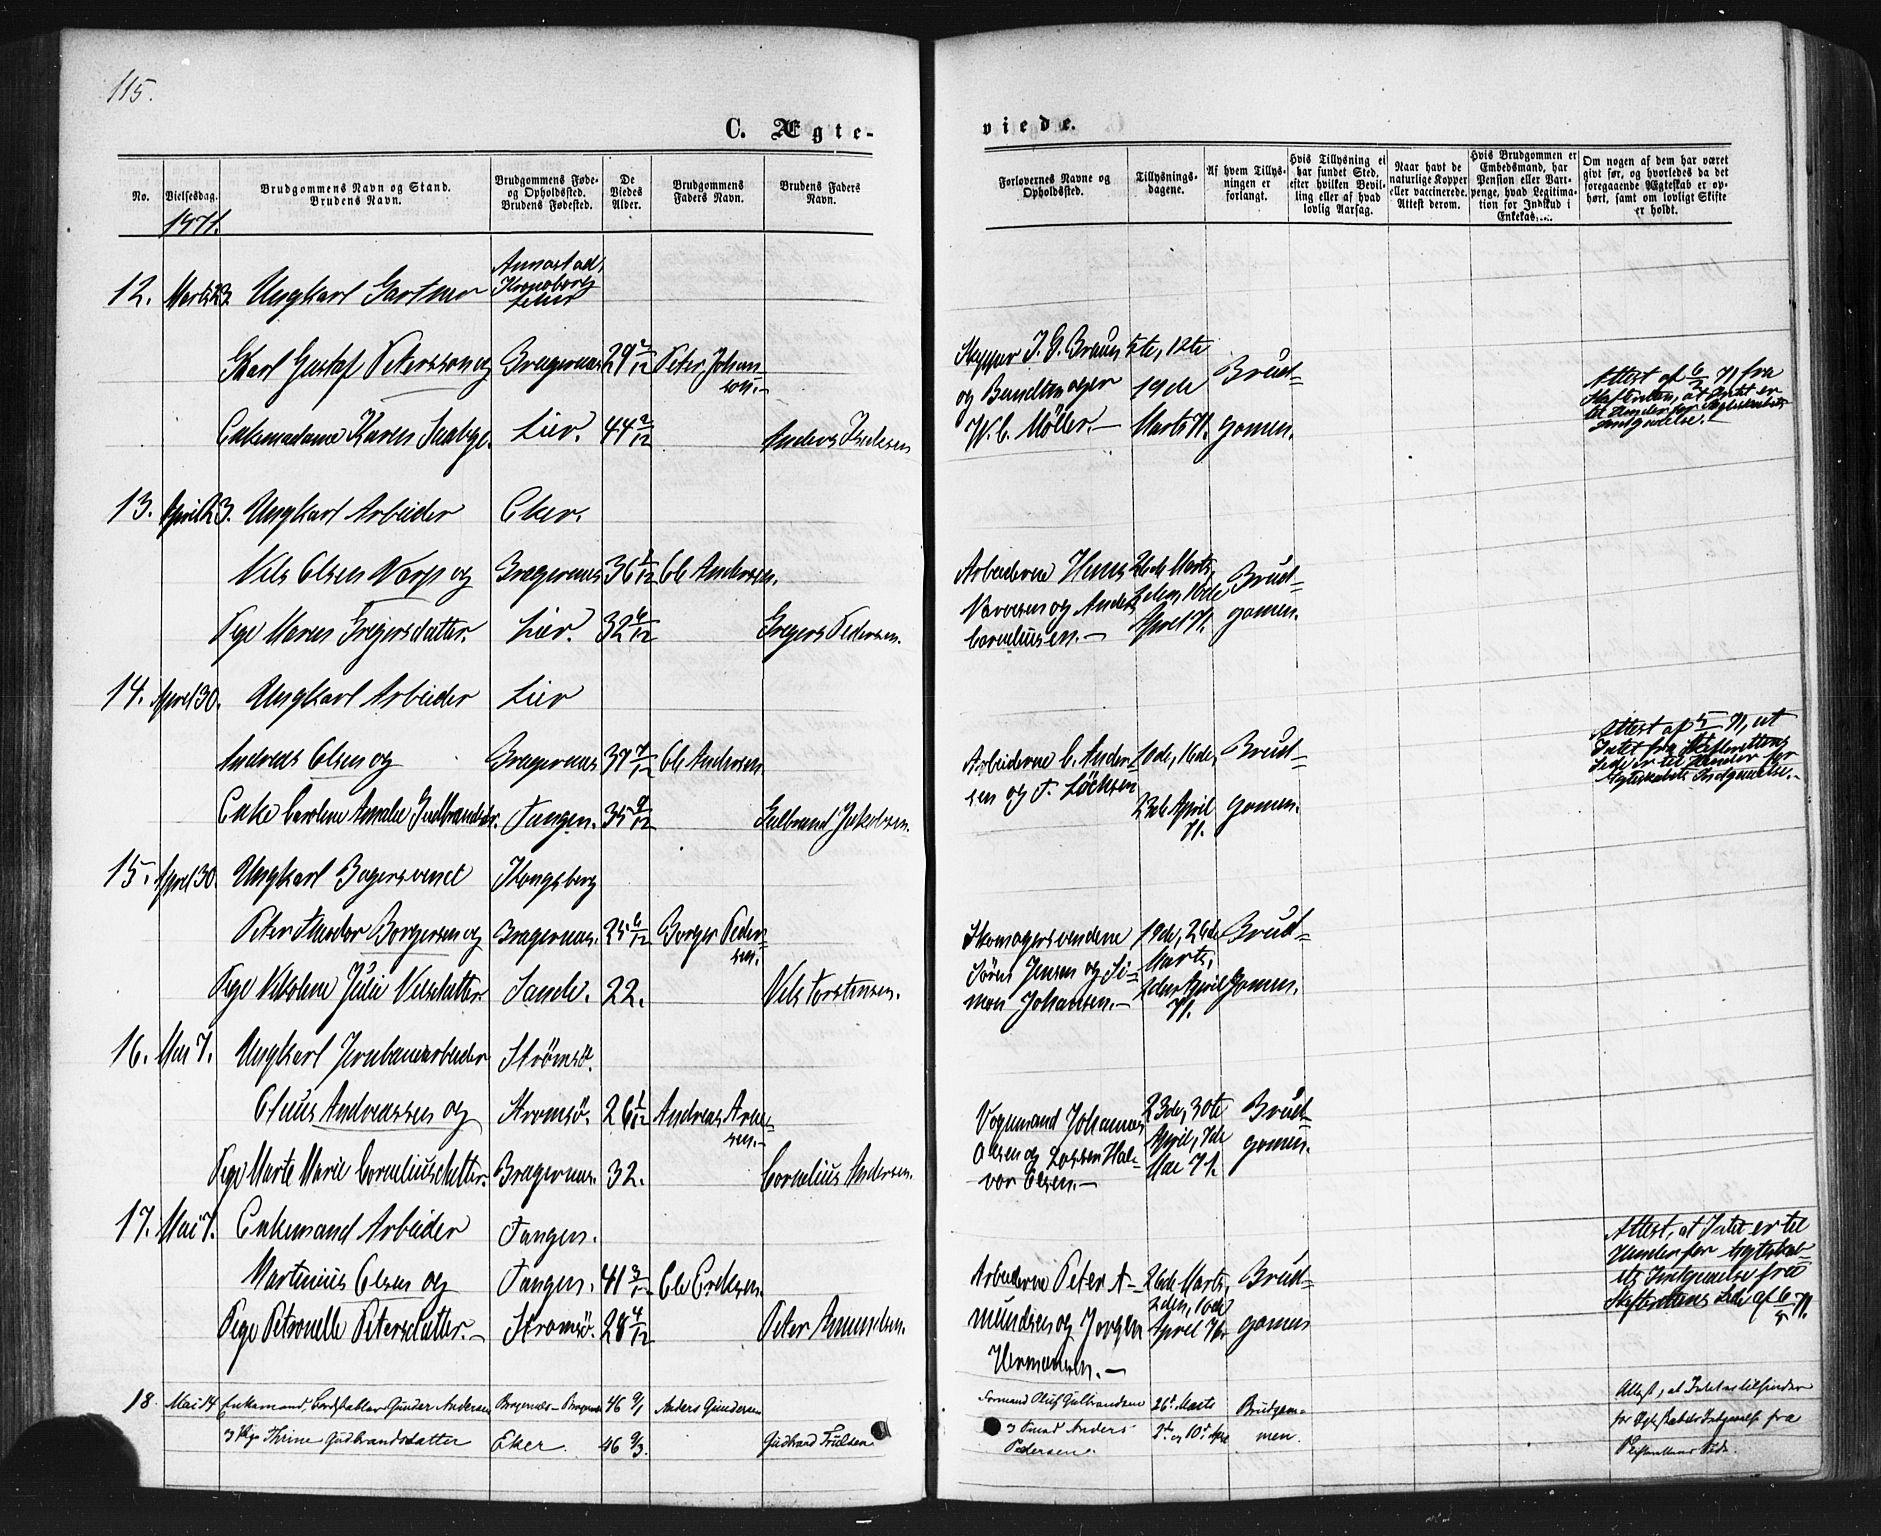 115.
C. Ægte-
No.
Vielsesdag.
Brudgommens Navn og Stand.
Brudens Navn.
Brudgommens Føde-
og Opholdsted.
Brudens Fødested.
De
Viedes
Alder.
Brudgommens
Faders Navn.
Brudens Faders
Navn.
1871.
12. Marts 23. Ungkarl Gartner
Karl Gustaf Petersson og Bragernæs 29 Peter Johan
sen.-
Enkemadame Karen Lier. 44 2/12
13. April 23. Ungkarl Arbeider Eker.
Nils Olsen Varp og Bragernæs 36 Ole Andersen.
Pige Maren Gregersdatter. Lier. 32 6/12 Gregers Pedersen.
14. April 30. Ungkarl Arbeider Lier
Andreas Olsen og Bragernæs 37 7/12 Ole Andersen
Enke Caroline Amalie Gulbrandsdr. Tangen. 35 9/12 Gulbrand Jakobsen.
15. April 30. Ungkarl Bagersvend Kongsberg
Peter Theodor Borgersen og Bragernæs. 25 6/12 Borger Peder-
sen.
Pige Nikoline Julie Nilsdatter Sande. 22. Nils Torstensen.
16. Mai 7. Ungkarl Jernbanearbeider Strømsø.
Olaus Andreassen og Strømsø. 26 1/12 Andreas Arne-
sen.-
Pige Marte Marie Corneliusdatter. Bragernæs. 32. Cornelius Andersen.
17. Mai 7. Enkemand Arbeider Tangen.
Martinius Olsen og Tangen. 41 3/12 Ole Eriksen.
Pige Petronelle Petersdatter.- Strømsø. 28 4/12 Peter Amundsen.
18. Mai 14 Enkemand, Gunder Andersen Bragernæs - Bragernæs 46 9/1 Anders Gundersen
og Pige Thrine Gudbrandsdatter Eker. 46 9/3. Gudbrand
viede.
Forlovernes Navne og
Opholdsted.
Tillysnings-
dagene.
Af hvem Tillys-
ningen er
forlangt.
Hvis Tillysning ei
har fundet Sted,
efter hvilken Bevil-
ling eller af hvad
lovlig Aarsag.
Naar havt de
naturlige Kopper
eller vaccinerede.
Attest derom.
Hvis Brudgommen er
Embedsmand, har
Pension eller Vart-
penge, hvad Legitima-
tion for Indskud i
Enkekas....
Om nogen af dem har været
givt før, og hvorledes da det
foregaaende Ægteskab er op-
hørt, samt om lovligt Skifte
er holdt.
J. G. Braun 5te, 12te
og Bundtmager 19de Brud-
W. C. Møller.- Marts 71. gomen.
Attest af 6/2 71 fra
Skifteretten, at Intet er
til Hinder for Ægteskabets
Indgaaelse.-
Arbeiderne Hans 26de Marts, Brud-
og Anders 2den, 10de gomen.
Corneliussen.- April 71.
Arbeiderne C. Ander- 10de, 16de, Brud-
sen og T. 23de April gomen.
71.
Attest af 71, at
Intet fra Skifterettens
Side er til Hinder for
Ægteskabets Indgaaelse.-
Skomagersvendene 19de, 26de Brud-
Søren Jensen og Si- Marts, gomen.
mon Johansen.- 2den April
71.
Vognmand Johannes 23de, 30te Brud-
Olsen og Hal- April, 7de gomen.
vor Olsen.- Mai 71.
Arbeiderne Peter A- 26de Marts, Brud-
mundsen og Jørgen 2den, 10de gomen
Hermansen.- April 71.
Attest, at Intet er til
Hinder for Ægteskab-
ets Indgaaelse fra
Skifterettens Side af 6/5 71.
Formand Oluf Gulbrandsen 26de Marts Brudgom-
og Anders 2den og 10de Apr. men.
Pedersen.
Attest, at Intet er til Hinder
for Ægteskabets Indgaaelse fra
Skifterettens Side.